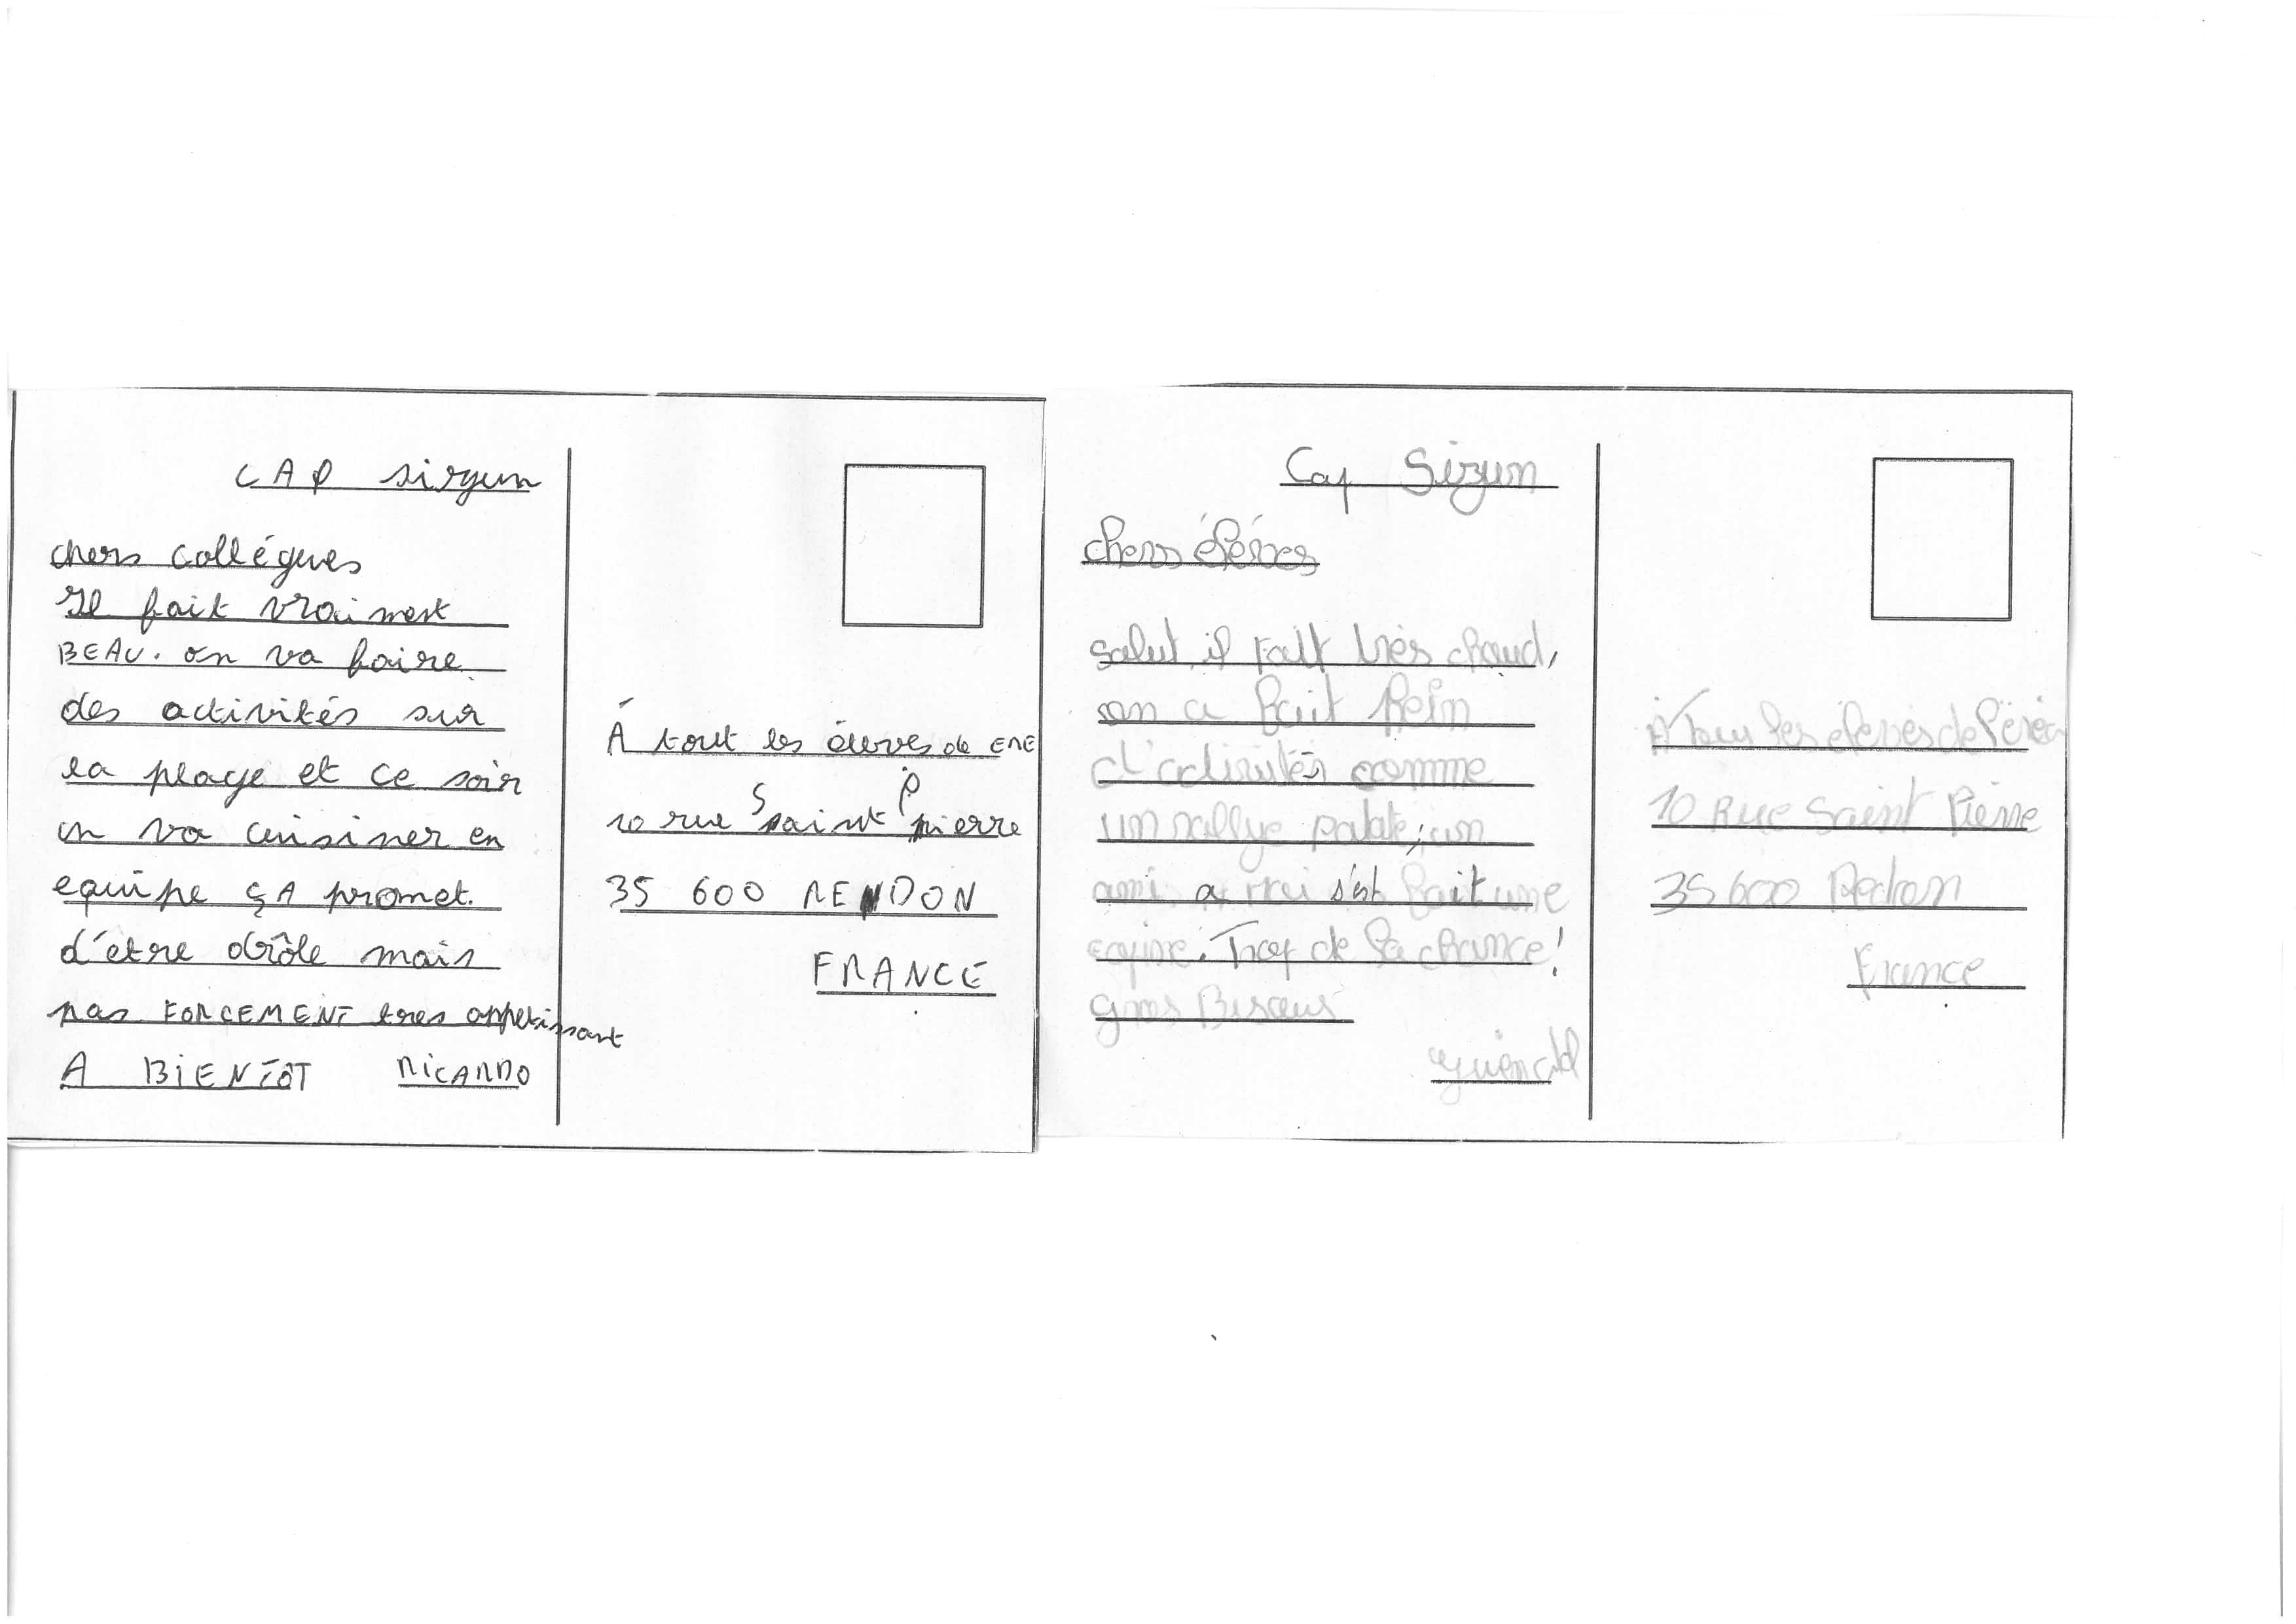 CAP sizun
chers collégues
Il fait vraiment
BEAU. on va faire
des activités sur
la plage et ce soir
on va cuisiner en
equipe çA promet
d'être drôle mais
pas FORCEMENT tres appetissant
A BIENTÔT RICARDO
À tout les éleves de ERE
10 rue Saint Pierre
35 600 REDON
FRANCE
Cap Sizun
chers éléves
salut il fait très chaud,
on a fait plein
d'activités comme
un rallye patate; un
ami a moi s'est fait une
equipe. Trop de la chance!
gros Bisous
À Tous les éleves de
10 Rue Saint Pierre
35600 Redon
France